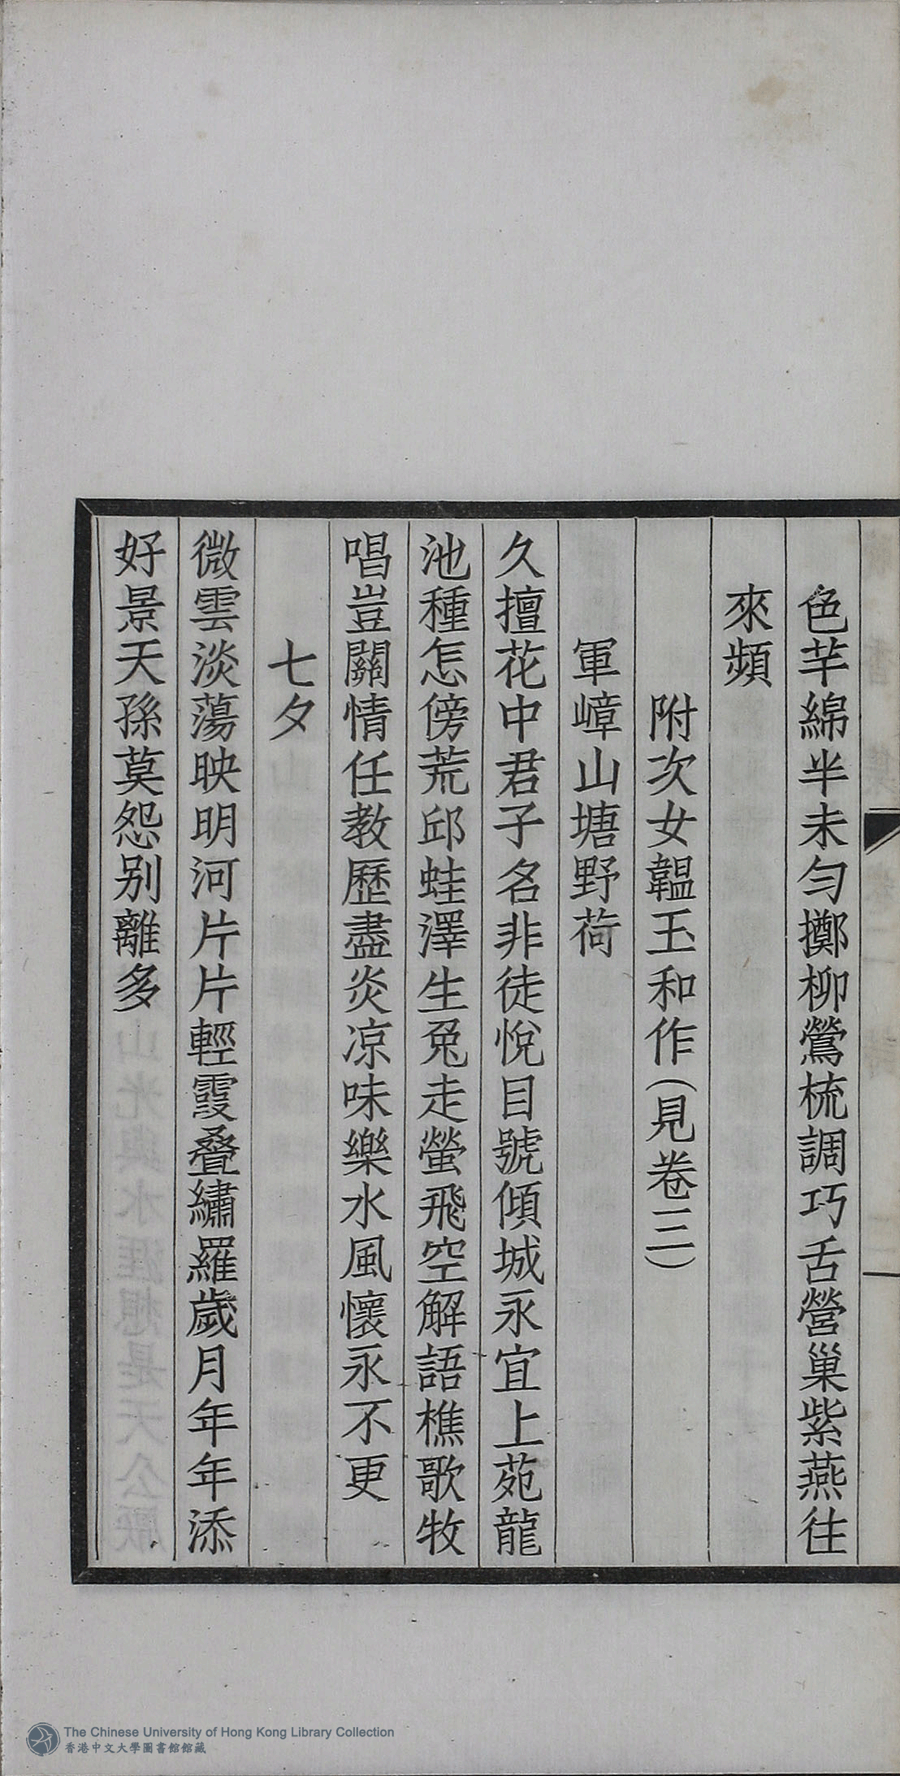 色芊綿半未勻擲柳鶯梳調巧舌營巢紫燕往
來頻
附次女韞玉和作(見卷三)
軍嶂山塘野荷
久擅花中君子名非徒悅目號傾城永宜上苑龍
池種怎傍荒邱蛙澤生兎走螢飛空解語樵歌牧
唱豈關情任教歷盡炎凉味樂水風懷永不更
七夕
微雲淡蕩映明河片片輕霞叠繡羅歲月年年添
好景天孫莫怨別離多
The Chinese University of Hong Kong Library Collection
香港中文大學圖書館館藏